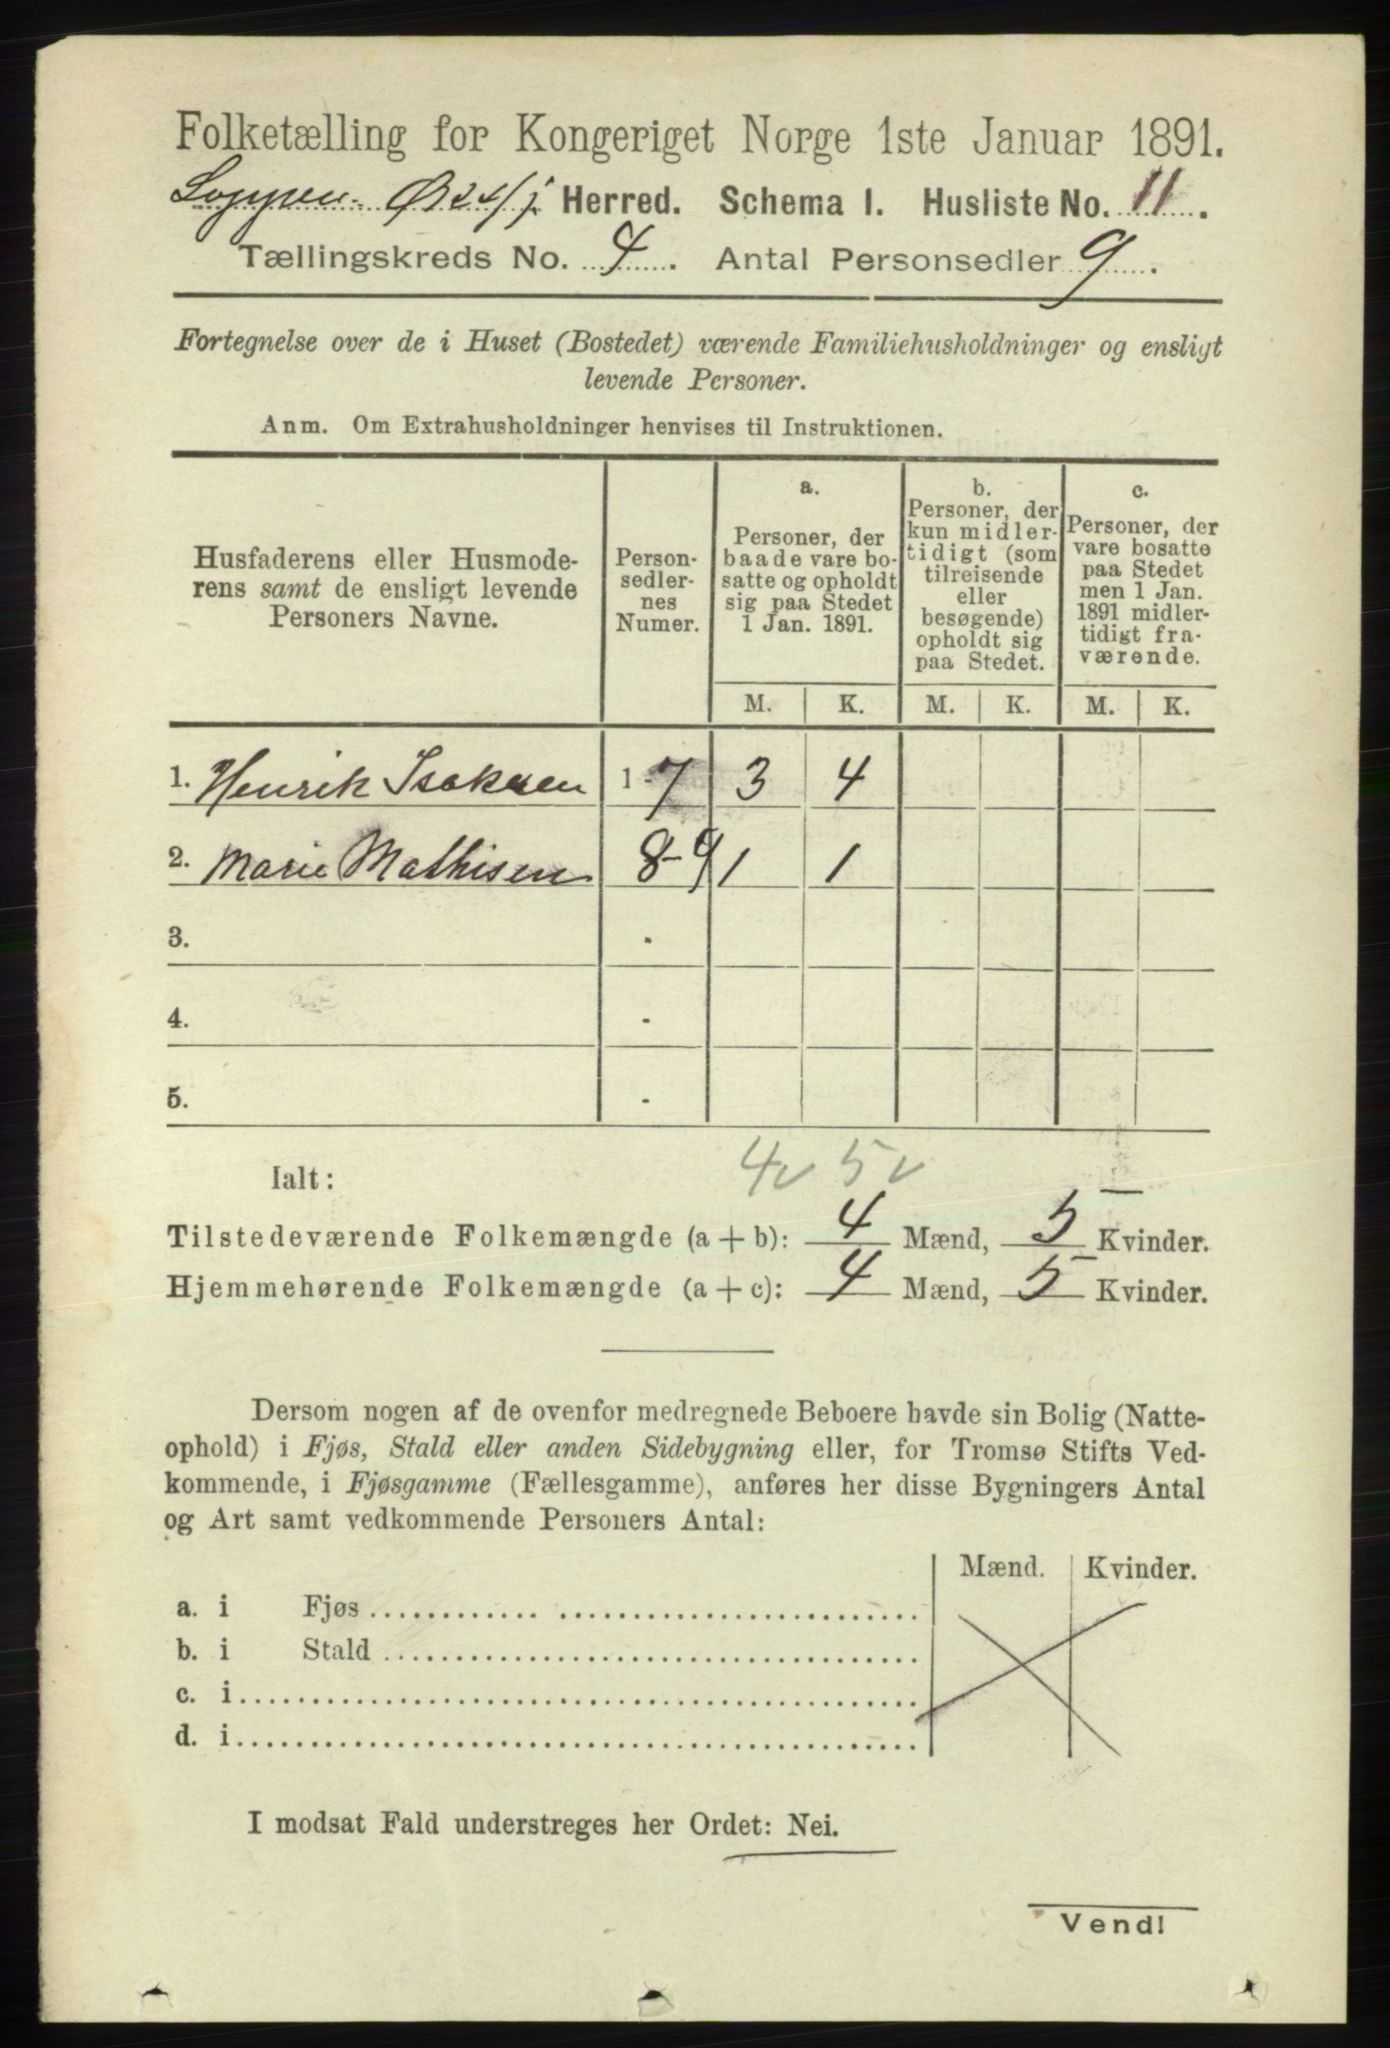 Folketælling for Kongeriget Norge 1ste Januar 1891.
Herred. Schema I. Husliste No. 11.
Tællingskreds No. 4. Antal Personsedler 9.
Fortegnelse over de i Huset (Bostedet) værende Familiehusholdninger og ensligt
levende Personer.
Anm. Om Extrahusholdninger henvises til Instruktionen.
Husfaderens eller Husmode-
rens samt de ensligt levende
Personers Navne.
Person-
sedler-
nes
Numer.
a.
Personer, der
baade vare bo-
satte og opholdt
sig paa Stedet
1 Jan. 1891.
b.
Personer, der
kun midler-
tidigt (som
tilreisende
eller
besøgende)
opholdt sig
paa Stedet.
c.
Personer, der
vare bosatte
paa Stedet
men 1 Jan.
1891 midler-
tidigt fra-
værende.
M. K. M. K. M. K.
1. Henrik Isaksen 1-7 3 4
2. Marie Mathisen 8-9 1 1
3. -
4. -
5. -
4 5
Ialt:
Tilstedeværende Folkemængde (a + b): 4 Mænd, 5 Kvinder.
Hjemmehørende Folkemængde (a + c): 4 Mænd, 5 Kvinder.
Dersom nogen af de ovenfor medregnede Beboere havde sin Bolig (Natte-
ophold) i Fjøs, Stald eller anden Sidebygning eller, for Tromsø Stifts Ved-
kommende, i Fjøsgamme (Fællesgamme), anføres her disse Bygningers Antal
og Art samt vedkommende Personers Antal:
Mænd. Kvinder.
a. i Fjøs
b. i Stald
c. i
d. i
I modsat Fald understreges her Ordet: Nei.
Vend!